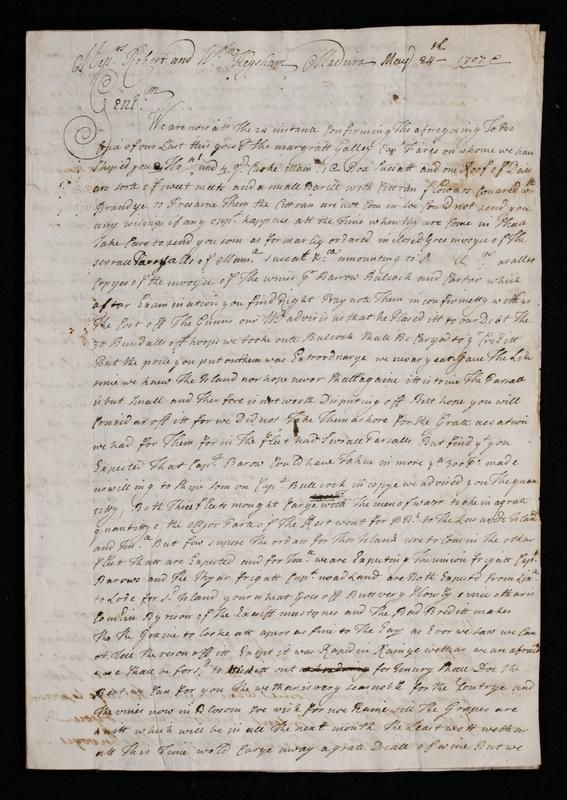 Mess.rs Robert and Wm Heysham Madeira May 24th 1707
Gent.m
We are now att the 24 instant Confirming the aforegoing To be
Copia of our Last this goes the margratt Galley Cap.t on whome we have
Shipt you 2 and 4 of Box Succatt and one Roof of Dau
ars sorts of sweet meets and a small Barill with Cittran flowars Couared wth
Brandye to Preserve Them the Cittran are not Com in soe Could not send you
any widings if any oppt happnes att the Time when thy are Come in Shall
Take Care to send you som as formarlig ordared inclosed Goes invoyce of The
sevrall Parsalls of Succat &ca amounting to as allso
Copyes of the invoyce of The wines p Barrow Bulcock and Cartor which
aftar Examination you find Right Pray note Them in confirmetty with us
The Cost off The Gunns our advis is as that he Placed itt to our Debt The
30 Bundalls off hoops we tooke outt Bulcock Shall Be Caryed to yr Creditt
But the price you put on them was Extrordnarye we nevar yeat Gave The Like
since we knew The Island nor hope nevar Shall againe itt is true The Parsall
is but small and Therfore is not worth Disputing off But hope you will
Considar off itt for we Did not Take Them ashore for the Gratt accation
we had for Them for in The Fleet had Sevrall Parsalls But find yt you
Expected That Capt Barow Could have Takne in more yn 300 made
us willing to Shipe som on Capt Bullcock in coppye we advised you The quan
titty Both Thies fleets mought Carye with The men of warr to the in a gratt
quantitye the Major Parte of The Rest went for to the Lowarde Islands
and But few supose the ordars for Tho Island are to Com in the othar
fleet thatt are Expected and for we are Expecting The union frigatt Capt
Barrows and the Tygar frigatt Capt woodland are Both Expected from
to Lode for Island your wheat Goes off Butt very slowly since othar is
Com in By reson of the Excesiff mustynes and The Bad Breditt makes
tho the Graine to Looke att apers as fine to the Eay as Evor we saw we Can
ot Tell the reson off itt Exept it was Raped in Rainye wethar we an afraid
we Shall be fors.d to sell itt out for Shall Doe the
Best we Can for you the wethar is very Seasonable for the Contrye and
The vines now in Blosom soe wish for noe Raine till The Grapes are
knitt which will be in all The next month The Least wett wethar
att This Time wold Carye away a gratt Deall of wine But we